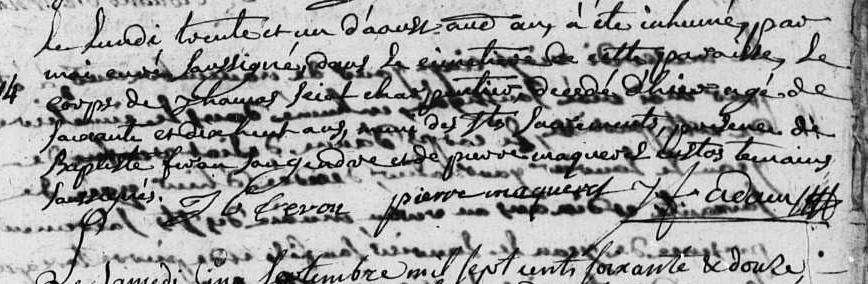 Le Lundi trente et un d'aoust aud an, a été inhumé, par
moi curé soussigné, dans le cimetiere de cette paroisse, Le
74
Corps de Thomas charpentier decedé d'hier agé de
soixante et dix huit ans, muni des Sts Sacrements, presence de
Baptiste son gendre et de pierre maqueret custos temoins
soussignés.
pierre maqueret J f. adam
Le Samedi cinq Septembre mil sept cents soixante & douze,